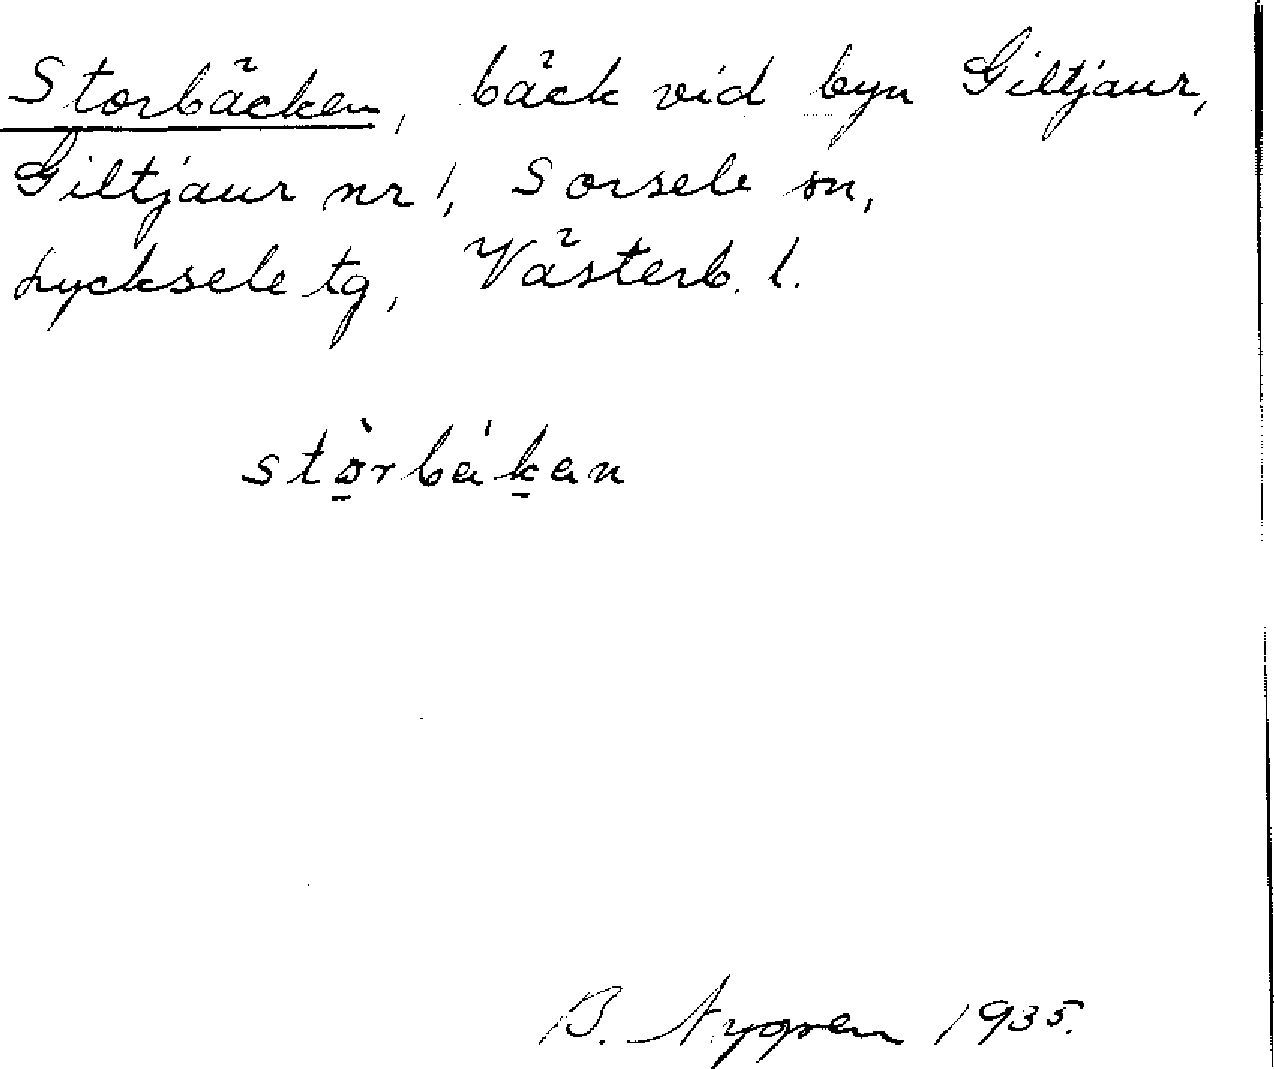 Storbäcken, bäck vid byn Giltjaur,
Giltjaur nr 1, Sorsele sn,
Lycksele tg, Västerb. l.
stò̱rbáḵan
B. Nygren 1935.